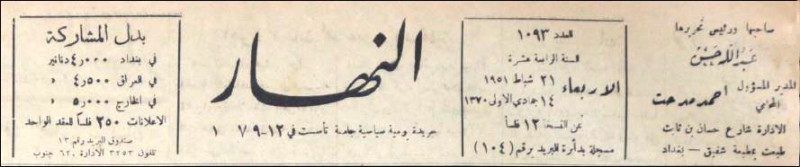 صاحبها ورئيس تحريرها
عبد الله حسن
المدير المسؤول
المحامي احمد مدحت
الادارة شارع حسان بن ثابت
طبعت بمطبعة شفيق – بغداد
العدد ١٠٩٣
السنة الرابعة عشرة
الاربعاء
٢١ شباط ١٩٥١
١٤ جمادي الاولى ١٣٧٠
ثمن النسخة ١٢ فلساً
مسجلة بدأرة البريد برقم (١٠٤)
النهار
جريدة يومية سياسية جامعة تأسست في ١٢-٩-٧ ١
بدل المشاركة
في بغداد ٤٫٠٠٠ دنانير
في العراق ٤٫٥٠٠ »
في الخارج ٥٫٠٠٠ »
الاعلانات ٢٥٠ فلساً للعقد الواحد
صندوق البريد رقم ١٣
تلفون ٣٢٥٣ الادارة، ٦٢ جنوب